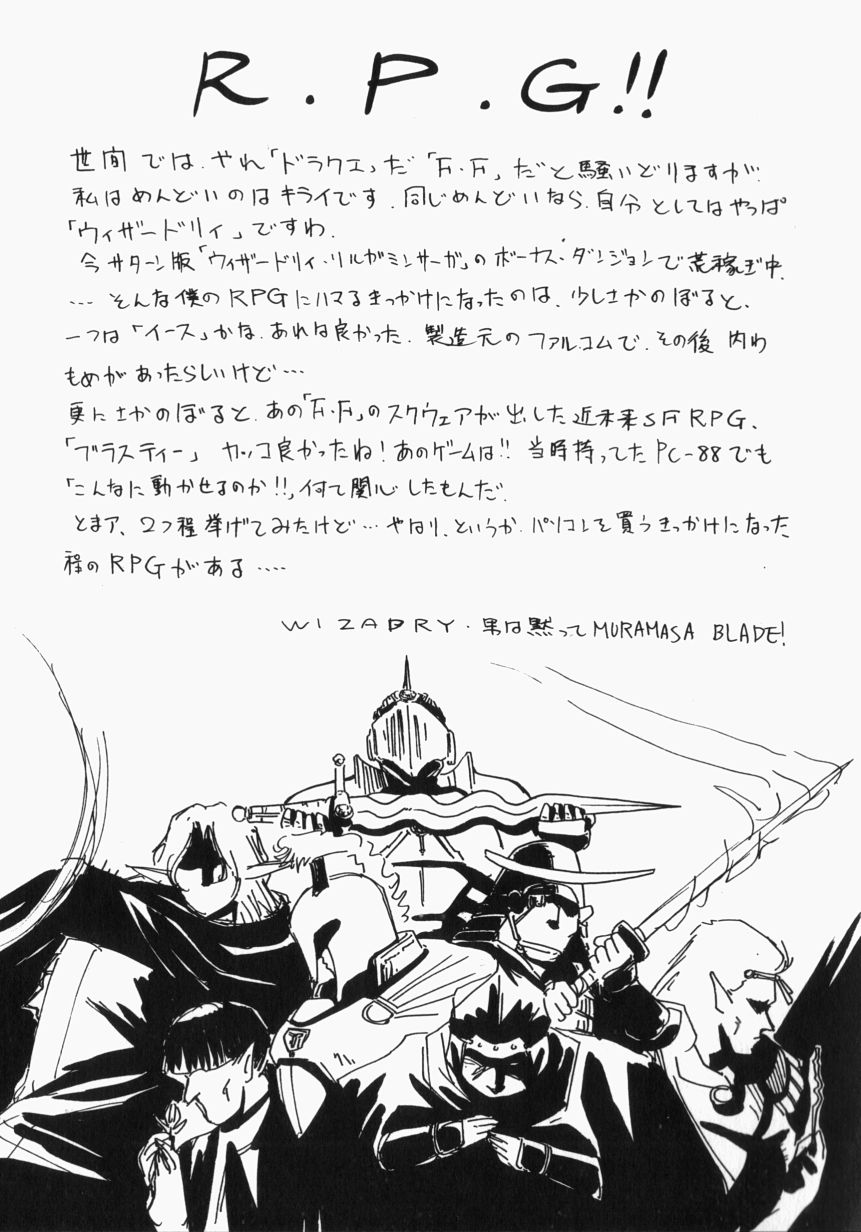 R.P.G!!
世間では、やれ「ドラクエ」だ「F・F」だと騒いどりますが、
私はめんどいのはキライです。同じめんどいなら、自分としてはやっぱ
「ウィザードリィ」ですわ。
今サターン版「ウィザードリィ・リルガミンサーガ」のボーナス・ダンジョンで荒稼ぎ中。
… そんな僕のRPGにハマるきっかけになったのは、少しさかのぼると、
一つは「イース」かな。あれは良かった。製造元のファルコムで、その後 内わ
もめがあったらしいけど…
更にさかのぼると、あの「F・F」のスクウェアが出した近未来SF RPG、
「ブラスティー」 カッコ良かったね!あのゲームは!! 当時持ってたPC-88でも
「こんなに動かせるのか!!」何て関心したもんだ。
とまア、2つ程挙げてみたけど…やはり、というか、パソコンを買うきっかけになった
程のRPGがある….
WIZADRY・男は黙ってMURAMASA BLADE!